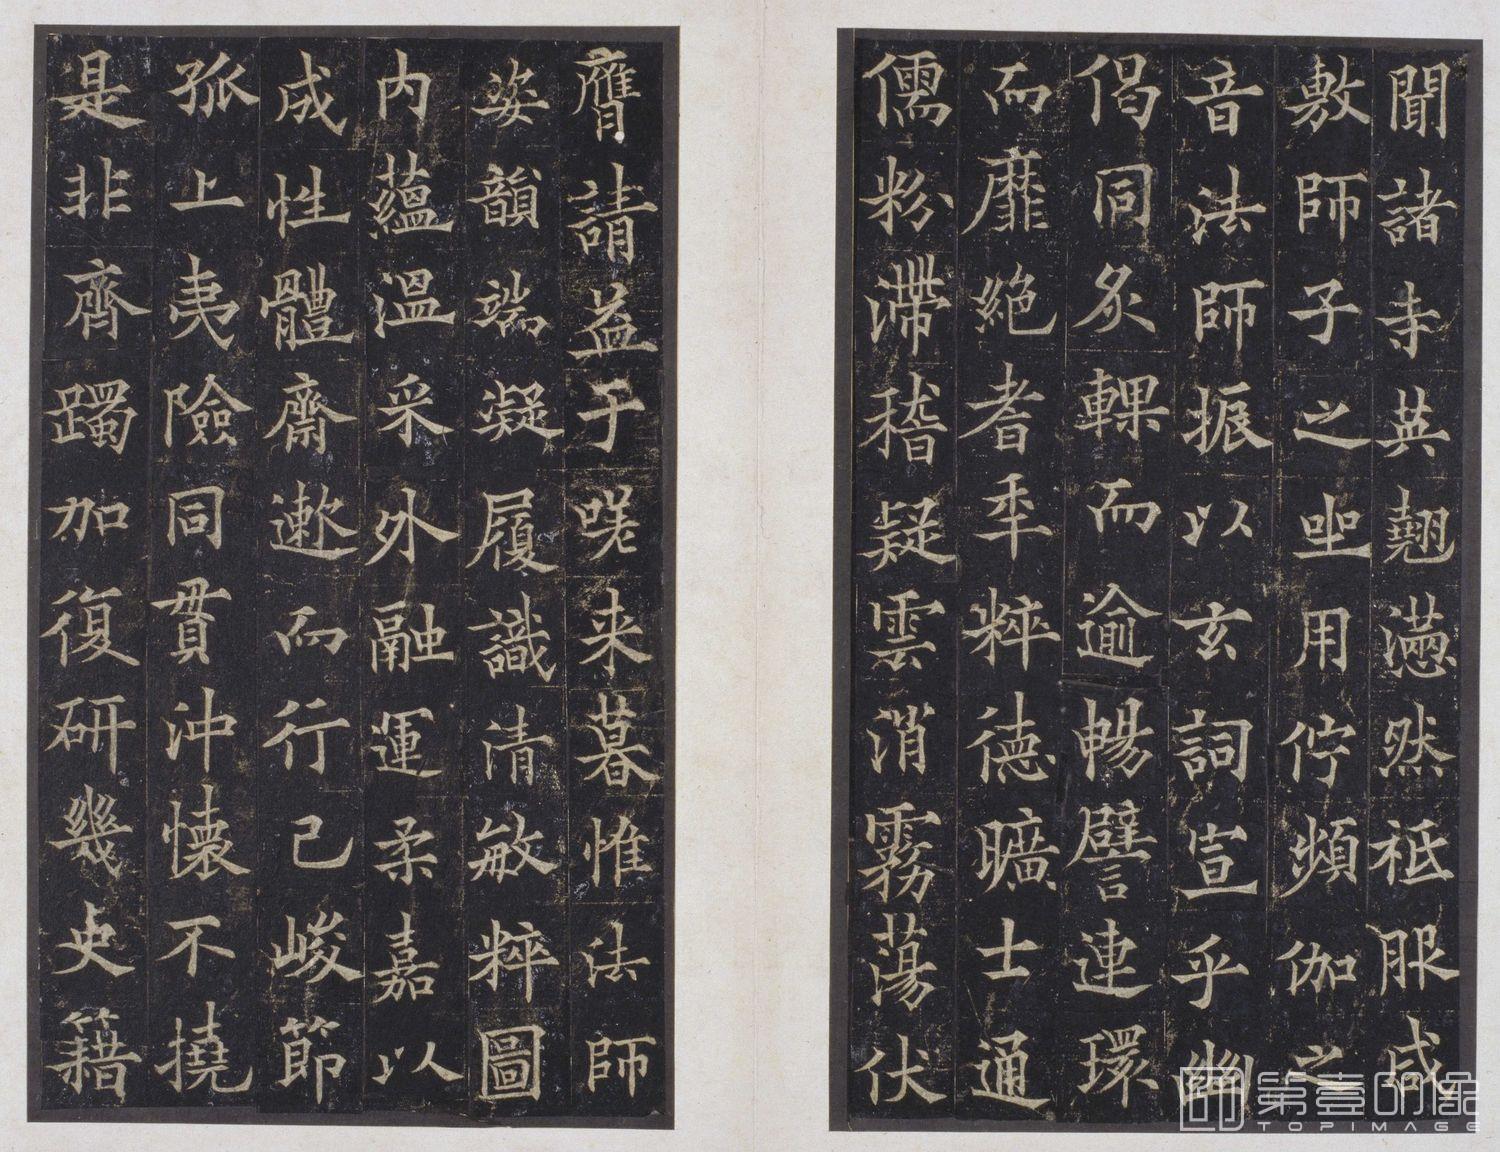 聞諸寺英翹懣然祗服咸
敷師子之坐用佇頻伽之
音法師振以玄詞宣乎幽
偈同炙輠而逾暢譬連環
而靡絕者年粹德曠士通
儒粉滯稽疑雲消霧蕩伏
膺請益于嗟來暮惟法師
姿韻端凝履識清敏粹圖
內蘊溫采外融運柔嘉以
成性體齋遬而行己峻節
孤上夷險同貫沖懷不撓
是非齊躅加復研幾史籍
第壹映像
TOPIMAGE